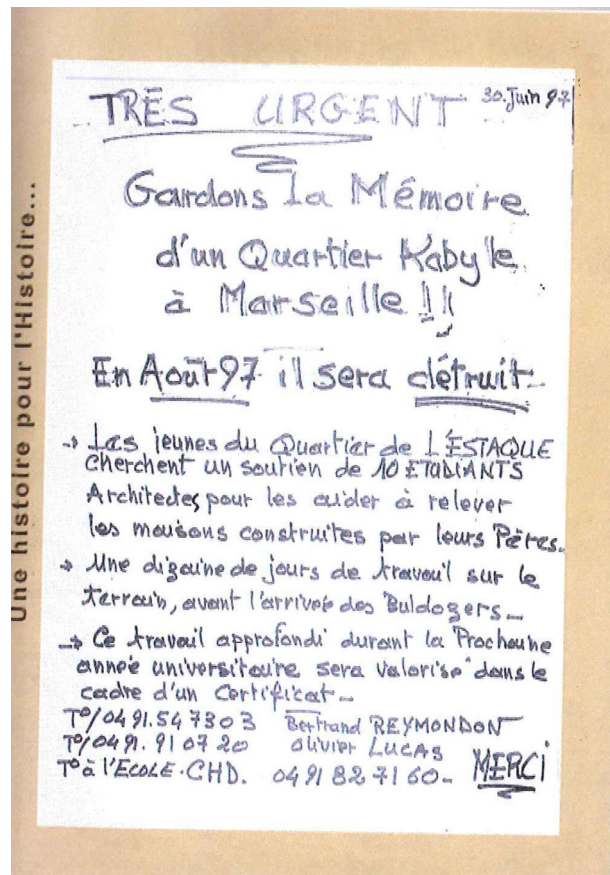 Une histoire pour l'Histoire...
30. Juin 97
TRÈS URGENT
Gardons la Mémoire
d'un Quartier Kabyle
à Marseille !!
En Août 97 il sera détruit
→ Les jeunes du Quartier de L'ESTAQUE
cherchent un soutien de 10 ETUDIANTS
Architectes pour les aider à relever
les maisons construites par leurs Pères.
→ Une dizaine de jours de travail sur le
terrain, avant l'arrivée des Buldozers_
→ Ce travail approfondi durant la Prochaine
année universitaire sera valorisé dans le
cadre d'un Certificat_
T°/0491.547303 Bertrand REYMONDON
T°/0491.910720 Olivier LUCAS
T° à l'ECOLE.CHD. 0491827160_ MERCI